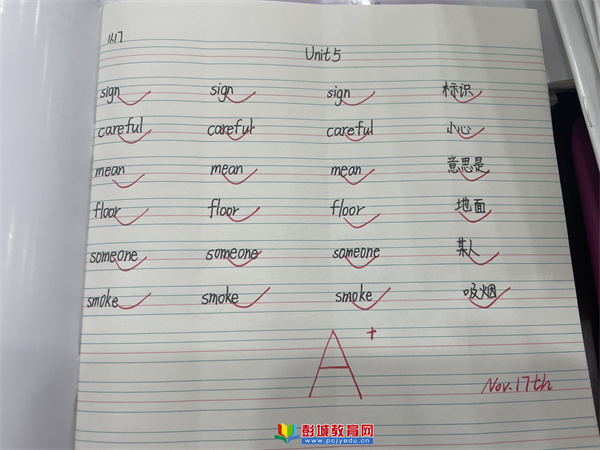 11.17
Unit 5
sign sign sign 标识
careful careful careful 小心
mean mean mean 意思是
floor floor floor 地面
someone someone someone 某人
smoke smoke smoke 吸烟
A+
Nov. 17th
彭城教育网
www.pcjyedu.cn